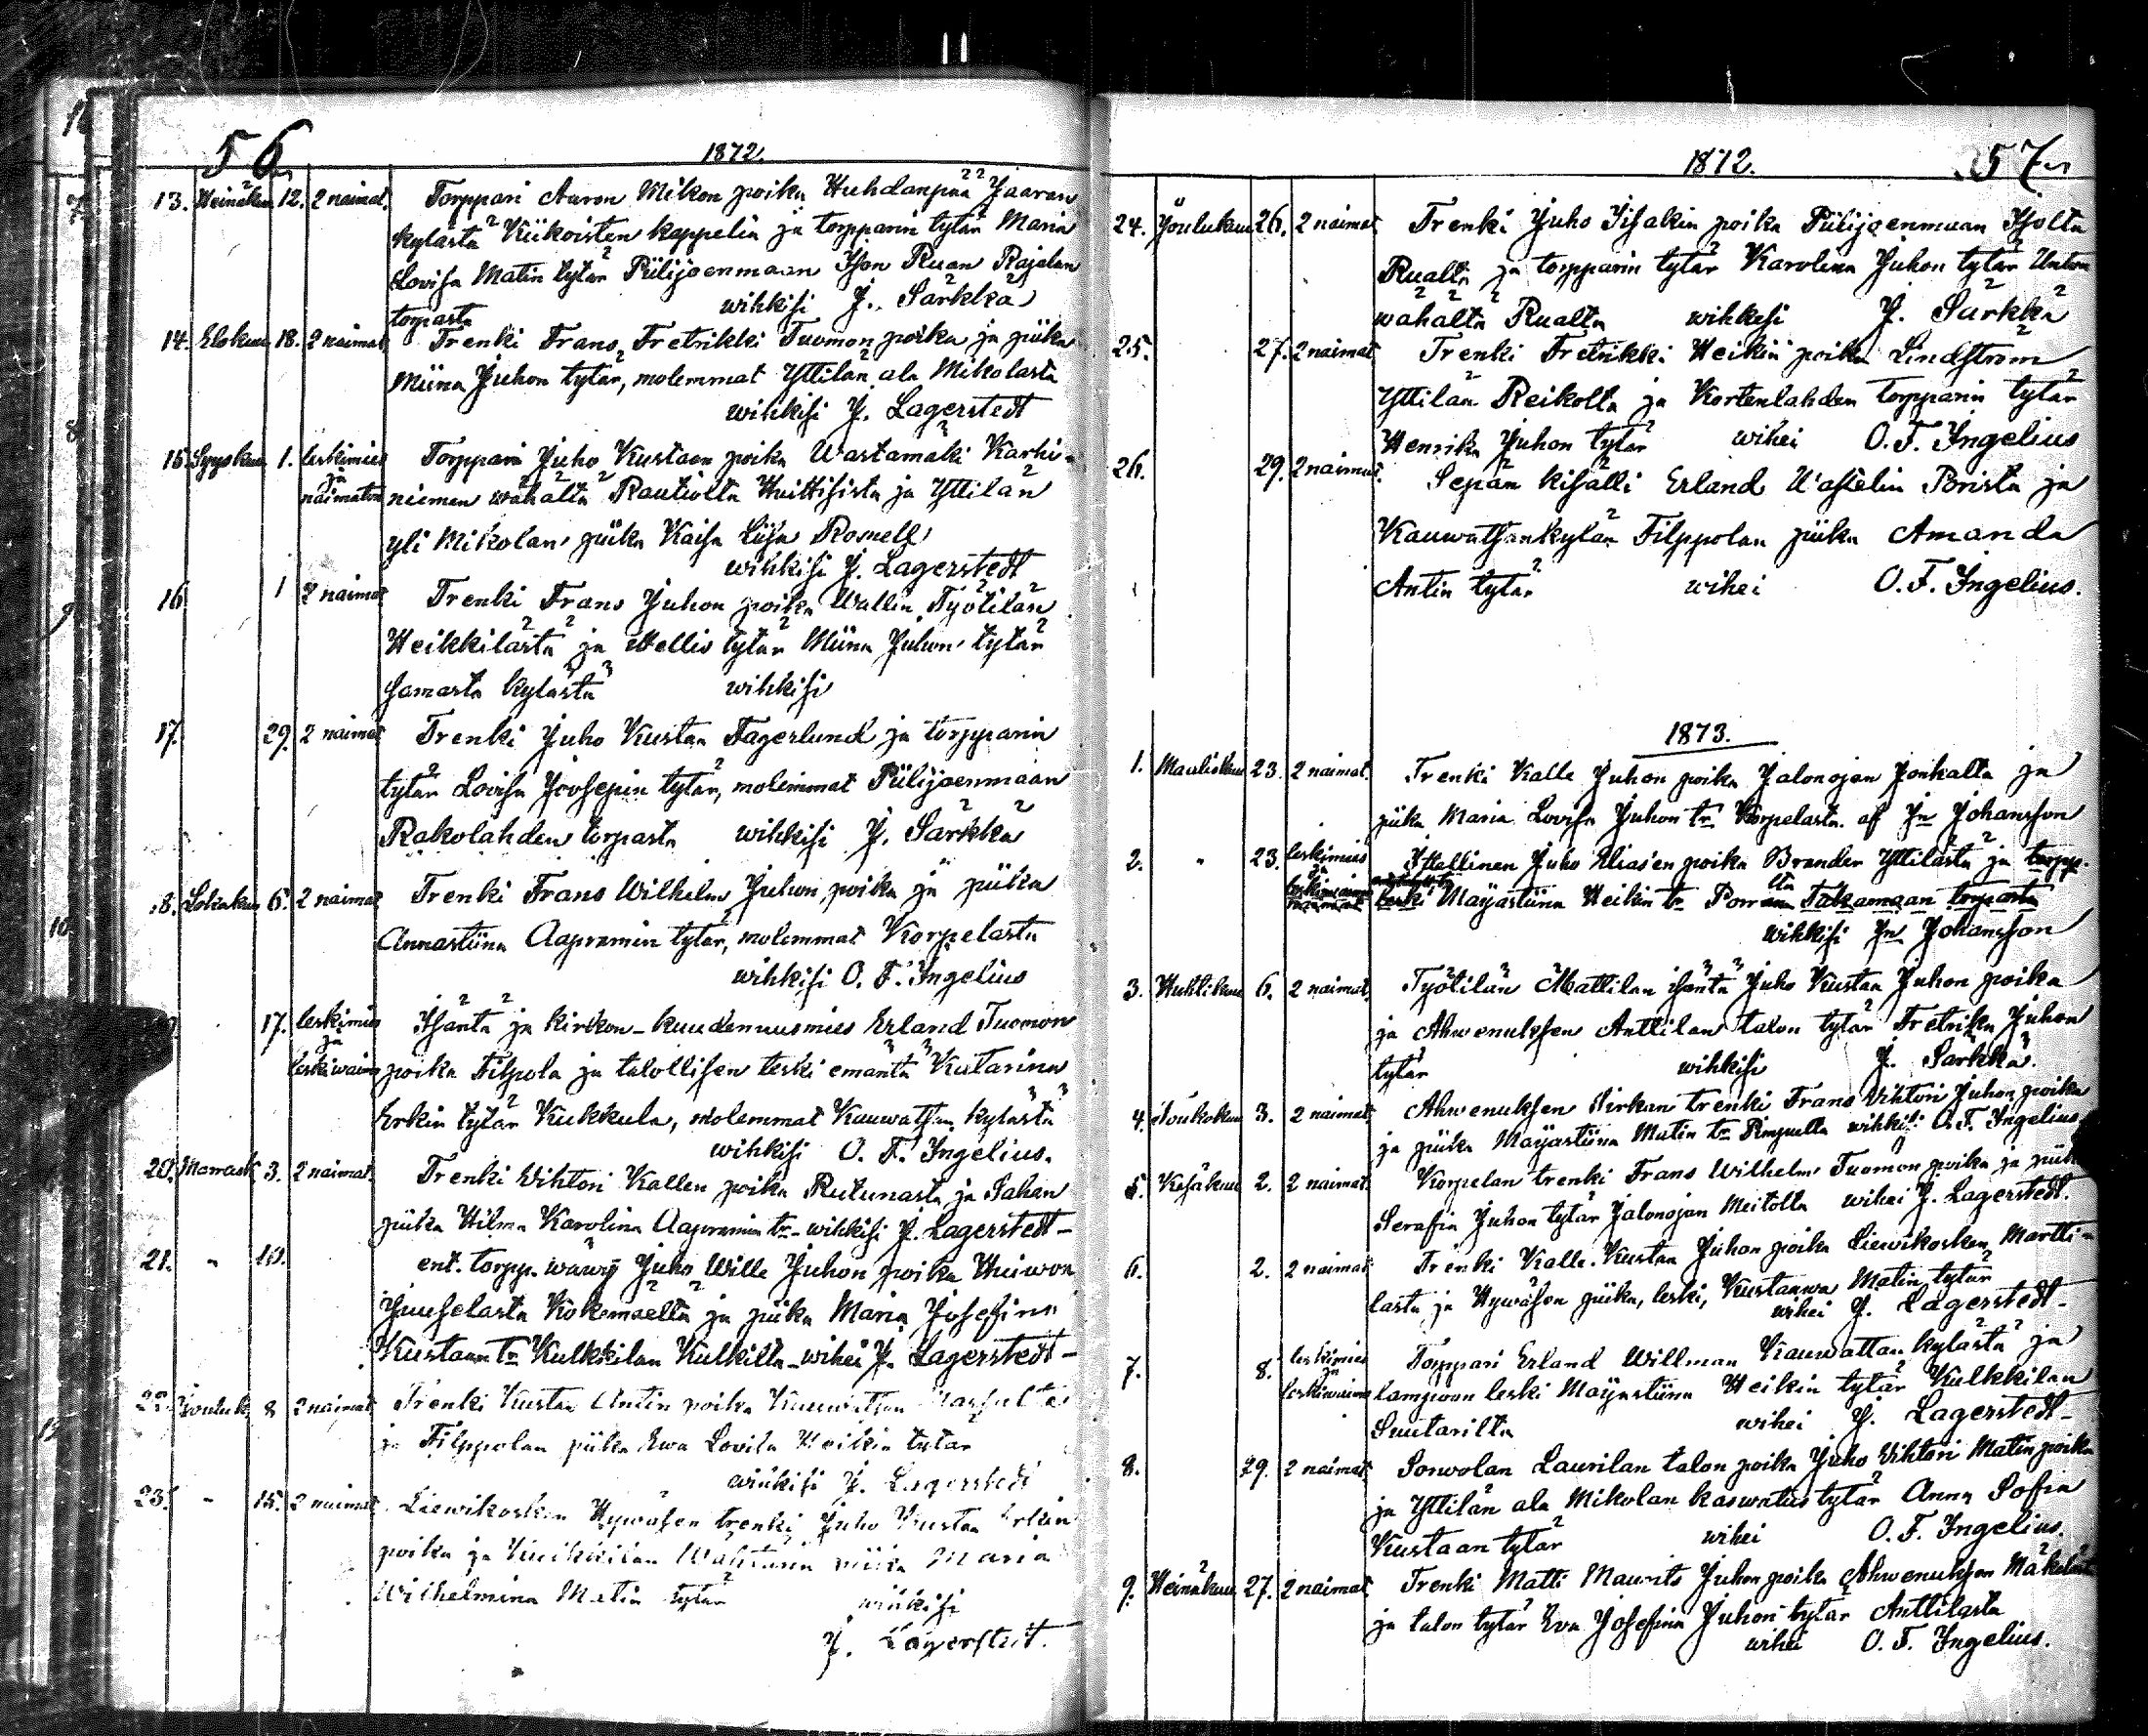 56
1872.
13. Heinäkuu 12. 2 naimat. Torppari Aaron Mikon poika Huhdanpää Jaaran
kylästä Kiikoisten kappelia ja torpparin tytär Maria
Lovisa Matin tytär Piilijoenmaan Ison Ruan Rajalan
torpasta wihkisi J. Särkkä
14. Elokuu 18. 2 naimat Trenki Frans Fretrikki Tuomon poika ja piika
Miina Juhon tytär, molemmat Yttilän ala Mikolasta
wihkisi J. Lagerstedt
15. Syyskuu 1. leskimies ja naimaton Torppari Juho Kustaan poika Wastamäki Karhi-
niemen wähältä Rautiolta Huittisista ja Yttilän
yli Mikolan piika Kaisa Liisa Rosnell
wihkisi J. Lagerstedt
16 1 2 naimat Trenki Frans Juhon poika Wallin Työtilän
Heikkilästä ja itellis tytär Miina Juhon tytär
samasta kylästä wihkisi
17. 29. 2 naimat Trenki Juho Kustaa Fagerlund ja torpparin
tytär Lovisa Joosepin tytär, molemmat Piilijoenmaan
Rakolahden torpasta wihkisi J. Särkkä
18. Lokakuu 6. 2 naimat Trenki Frans Wilhelm Juhon poika ja piika
Annastiina Aapramin tytär, molemmat Korpelasta
wihkisi O. F. Ingelius
17. leskimies ja leskiwaimo Isäntä ja kirkon-kuudennusmies Erland Tuomon
poika Filpola ja talollisen leski emäntä Katarina
Erkin tytär Kukkula, molemmat Kauwatsan kylästä
wihkisi O. F. Ingelius.
20. Marrask 3. 2 naimat. Trenki Wihtori Kallen poika Rutunasta ja Sahan
piika Hilma Karolina Aapramin tr wihkisi J. Lagerstedt-
21. " 10. ent. torpp. wäwy Juho Wille Juhon poika
Kokemäeltä ja piika Maria Josefina
Kustaan tr Kulkkilan Kulkilta wihei J. Lagerstedt-
22. Jouluk 8 2 naimat Trenki Kustaa Antin poika Kauwatsan
ja Filppolan piika Ewa Lovisa Heikin tytär
wihkisi J. Lagerstedt
23. " 15. 2 naimat Liewikosken Hywäsen trenki Juho Kustaa Erkin
poika ja piika Maria
Wilhelmina Matin tytär wihkisi
J. Lagerstedt.
57
1872.
24. Joulukuu 26. 2 naimat Trenki Juho Iisakin poika Piilijoenmaan Isolta
Rualta ja torpparin tytär Karolina Juhon tytär
wähältä Rualta wihkisi J. Särkkä
25. 27. 2 naimat Trenki Fretrikki Heikin poika Lindström
Yttilän Reikolta ja Kortenlahden torpparin tytär
Henrika Juhon tytär wihei O. F. Ingelius
26. 29. 2 naimat. Sepän kisälli Erland Brista ja
Kauwatsankylän Filppolan piika Amanda
Antin tytär wihei O. F. Ingelius.
1873.
1. Maaliskuu 23. 2 naimat. Trenki Kalle Juhon poika Jalonojan Jonkalta ja
piika Maria Lovisa Juhon tr Korpelasta. af Jn Johansson
2. " 23. leskimies Itellinen Juho Elias'en poika Brander Yttilästä ja torpp.
leski Majastiina Heikin tr Takamaan torpasta
wihkisi Jn Johansson
3. Huhtikuu 6. 2 naimat. Työtilän Mattilan isäntä Juho Kustaa Juhon poika
ja Ahwenuksen Anttilan talon tytär Fretrika Juhon
tytär wihkisi J. Särkkä.
4. Toukokuu 3. 2 naimat. Ahwenuksen Pirkan trenki Frans Vihtori Juhon poika
ja piika Majastiina Matin tr wihkisi O. F. Ingelius
5. Kesäkuu 2. 2 naimat. Korpelan trenki Frans Wilhelm Tuomon poika ja piika
Serafia Juhon tytär Jalonojan Meitolta wihei J. Lagerstedt.
6. 2. 2 naimat Trenki Kalle Kustaa Juhon poika Liewikosken Martti-
lasta ja Hywäsen piika, leski, Kustaawa Matin tytär
wihei J. Lagerstedt-
7. 8. leskimies ja leskiwaimo Torppari Erland Willman Kauwattan kylästä ja
lampuon leski Majastiina Heikin tytär Kulkkilan
Suutarilta wihei J. Lagerstedt-
8. 29. 2 naimat Sorwolan Laurilan talon poika Juho Vihtori Matin poika
ja Yttilän ala Mikolan kaswatus tytär Anna Sofia
Kustaan tytär wihei O. F. Ingelius.
9. Heinäkuu 27. 2 naimat Trenki Matti Maurits Juhon poika Ahwenuksen Mäkelästä
ja talon tytär Eva Josefina Juhon tytär Anttilasta
wihei O. F. Ingelius.